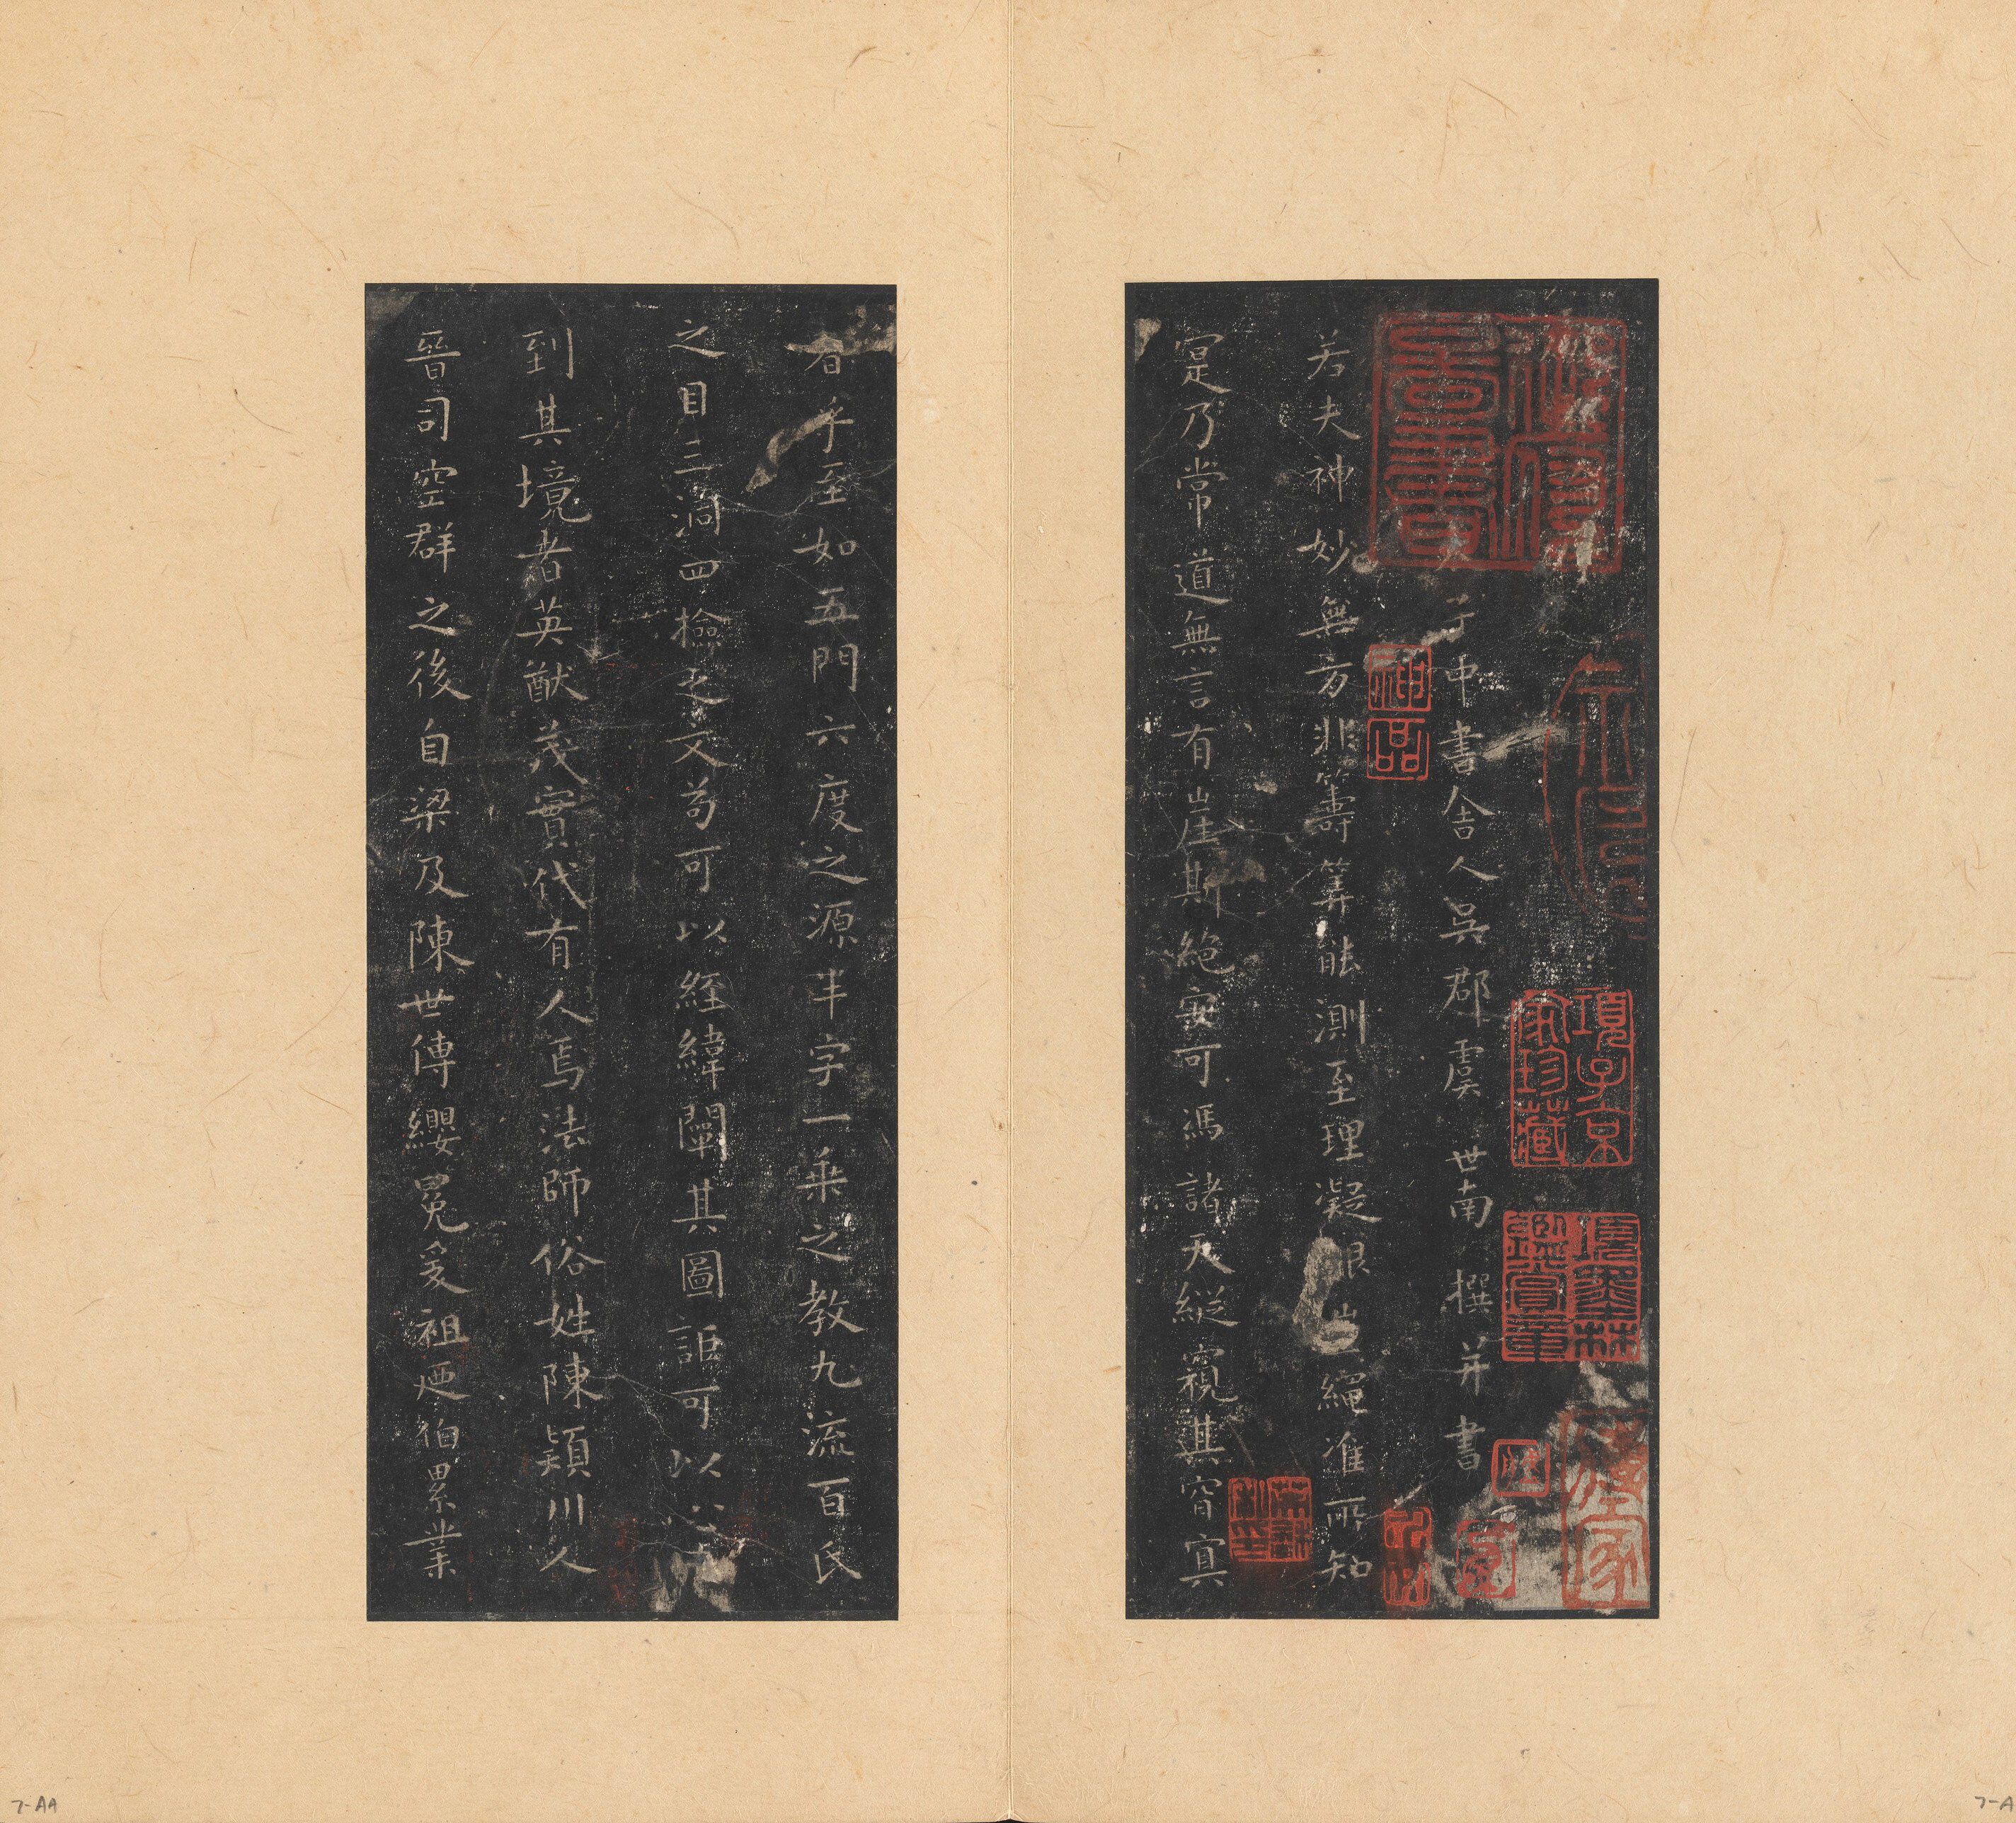 子中書舍人吳郡虞世南撰并書
若夫神妙無方非籌筭能測至理凝邈豈繩准所知
寔乃常道無言有崖斯絕安可馮諸天縱窺其窅冥
者乎至如五門六度之源半字一乘之教九流百氏
之目三洞四檢之文苟可以經緯闡其圖詎可以
到其境者英猷茂實代有人焉法師俗姓陳潁川人
晉司空群之後自梁及陳世傳纓冕爰祖廼伯累業
神品
項子京家珍藏
項墨林鑑賞章
7-A
7-AA